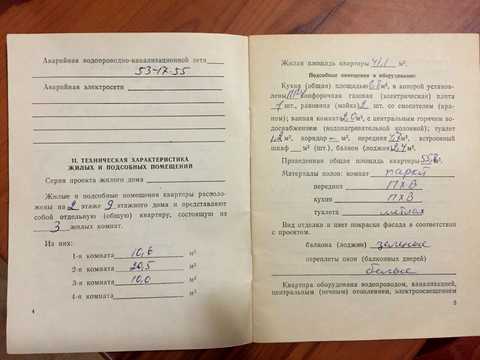 Аварийная водопроводно-канализационной сети
53-17-55
Аварийная электросети
II. ТЕХНИЧЕСКАЯ ХАРАКТЕРИСТИКА
ЖИЛЫХ И ПОДСОБНЫХ ПОМЕЩЕНИЙ
Серия проекта жилого дома
Жилые и подсобные помещения квартиры располо-
жены на 2 этаже 9 этажного дома и представляют
собой отдельную (общую) квартиру, состоящую из
3 жилых комнат.
Из них:
1-я комната 10,6 м²
2-я комната 20,5 м²
3-я комната 10,0 м²
4-я комната м²
4
Жилая площадь квартиры 41,1 м².
Подсобные помещения и оборудование:
Кухня (общая) площадью м², в которой установ-
лены конфорочная газовая (электрическая) плита
1 шт., раковина (мойка) со смесителем (кра-
ном); ванная комната 2,0 м², с центральным горячим во-
доснабжением (водонагревательной колонкой); туалет
1,2 м², коридор — м², передняя м², встроенный
шкаф — м² (шт.), балкон (лоджия) 2,4 м².
Приведенная общая площадь квартиры м².
Материалы полов: комнат паркет
передней ПХВ
кухни ПХВ
туалета метлах
Вид отделки и цвет покраски фасада в соответствии
с проектом.
балкона (лоджии) зеленые
переплеты окон (балконных дверей)
белые
Квартира оборудована водопроводом, канализацией,
центральным (печным) отоплением, электроосвещением
5